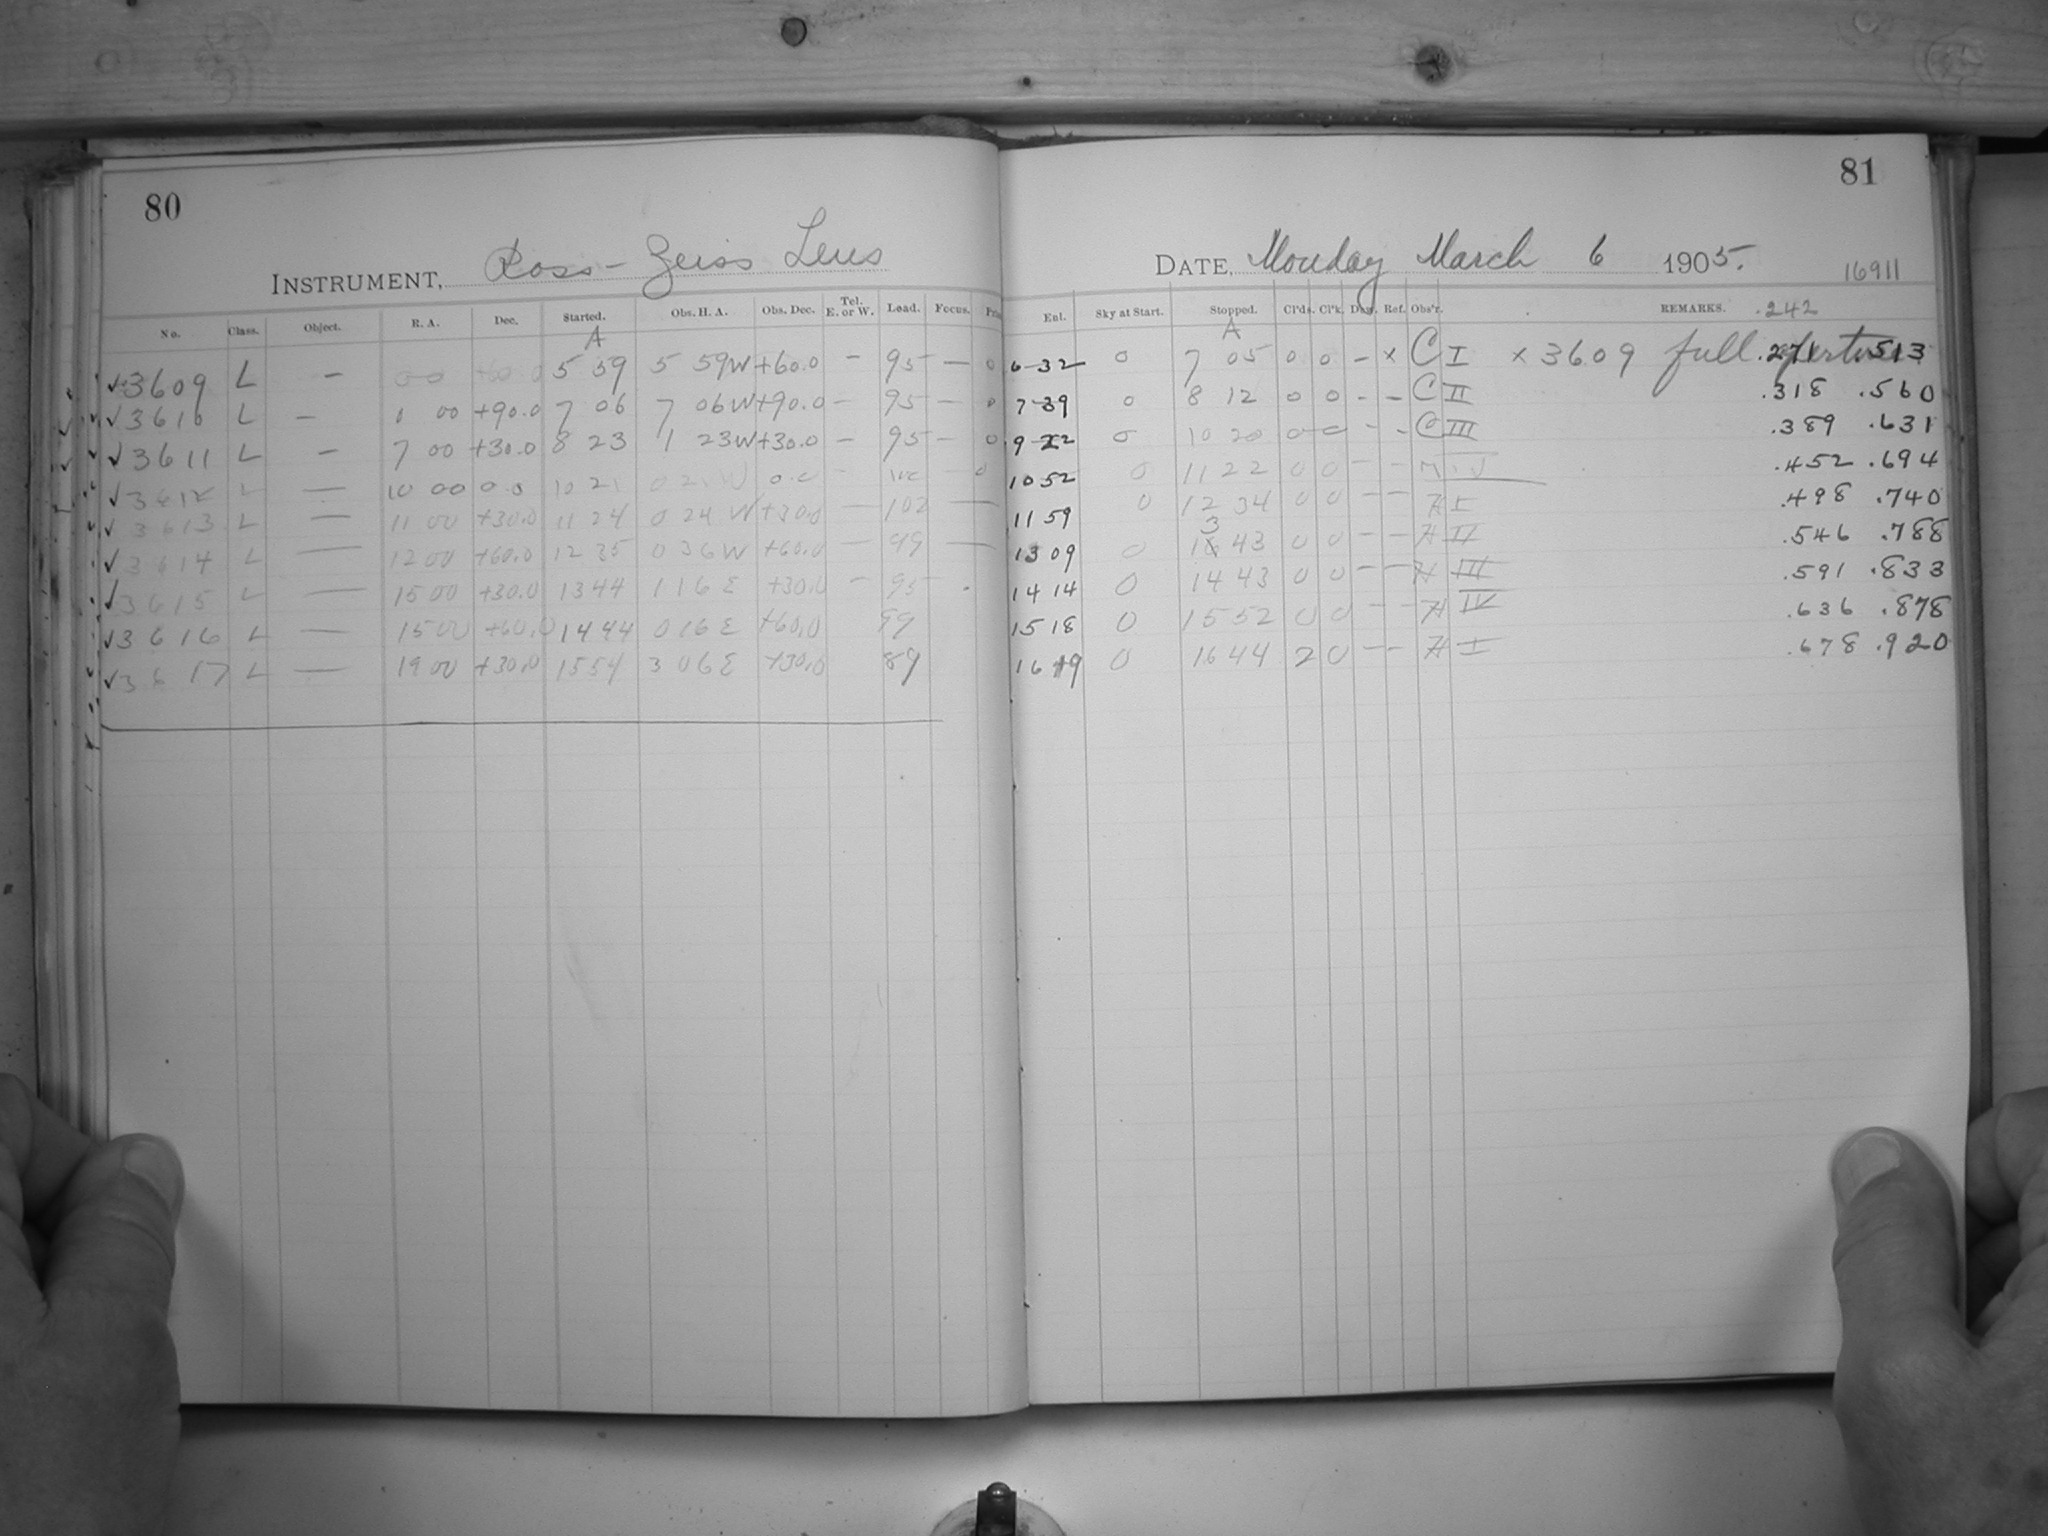 80
INSTRUMENT, Ross-Zeiss Lens
No. Class. Object. R. A. Dec. Started. Obs. H. A. Obs. Dec. Tel. E. or W. Load. Focus.
A
✓3609 L — 5 59 5 59W +60.0 — 95 — 0
✓3610 L — 00 +90.0 7 06 7 06W +90.0 — 95 — 0
✓3611 L — 7 00 +30.0 8 23 1 23W +30.0 — 95 — 0
✓3612 L — 10 00 0.0 10 21 0 21 W 0.0 — — 0
✓3613 L — 11 00 +30.0 11 24 0 24 W +30.0 — 102 —
✓3614 L — 12 00 +60.0 12 35 0 36W +60.0 — 99 —
✓3615 L — 15 00 +30.0 13 44 1 16 E +30.0 — 95
✓3616 L — 15 00 +60.0 14 44 0 16 E +60.0 99
✓3617 L — 19 00 +30.0 15 54 3 06 E +30.0 89
81
DATE, Monday March 6 1905.
16911
Ent. Sky at Start. Stopped. Cl'ds. Cl'k. Dew. Ref. Obs'r. REMARKS. .242
A
6-32 0 7 05 0 0 — × C I × 3609 full aperture .271 .513
7-39 0 8 12 0 0 — — C II .318 .560
9-22 0 10 20 0 0 — — C III .389 .631
10 52 0 11 22 0 0 — — .452 .694
11 59 0 12 34 0 0 — — A I .498 .740
13 09 0 13 43 0 0 — — A II .546 .788
14 14 0 14 43 0 0 — — A III .591 .833
15 18 0 15 52 0 0 — — A IV .636 .878
16 19 0 16 44 2 0 — — A I .678 .920